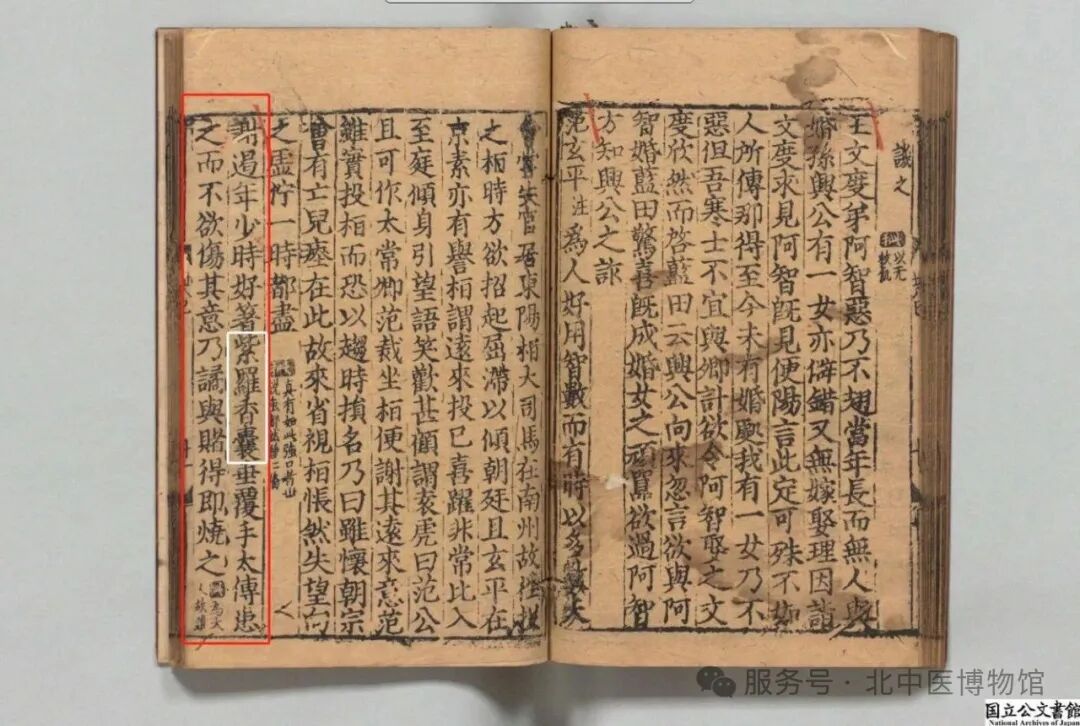 譏之
王文度弟阿智惡乃不翅當年長而無人與
婚孫興公有一女亦僻錯又無嫁娶理因詣
文度求見阿智旣見便陽言此定可殊不如
人所傳那得至今未有婚處我有一女乃不
惡但吾寒士不宜與卿計欲令阿智娶之文
度欣然而啓藍田云興公向來忽言欲與阿
智婚藍田驚喜旣成婚女之頑嚚欲過阿智
方知興公之詐
范玄平注為人好用智數而有時以多數失
會嘗失官居東陽桓大司馬在南州故往投
之桓時方欲招起屈滯以傾朝廷且玄平在
京素亦有譽桓謂遠來投己喜躍非常比入
至庭傾身引望語笑歡甚顧謂袁虎曰范公
且可作太常卿范裁坐桓便謝其遠來意范
雖實投桓而恐以趨時損名乃曰雖懷朝宗
會有亡兒瘞在此故來省視桓悵然失望向
之虛佇一時都盡 真有如此強口
謝遏年少時好著紫羅香囊垂覆手太傅患
之而不欲傷其意乃譎與賭得即燒之
服务号·北中医博物馆
国立公文書館
National Archives of Japan